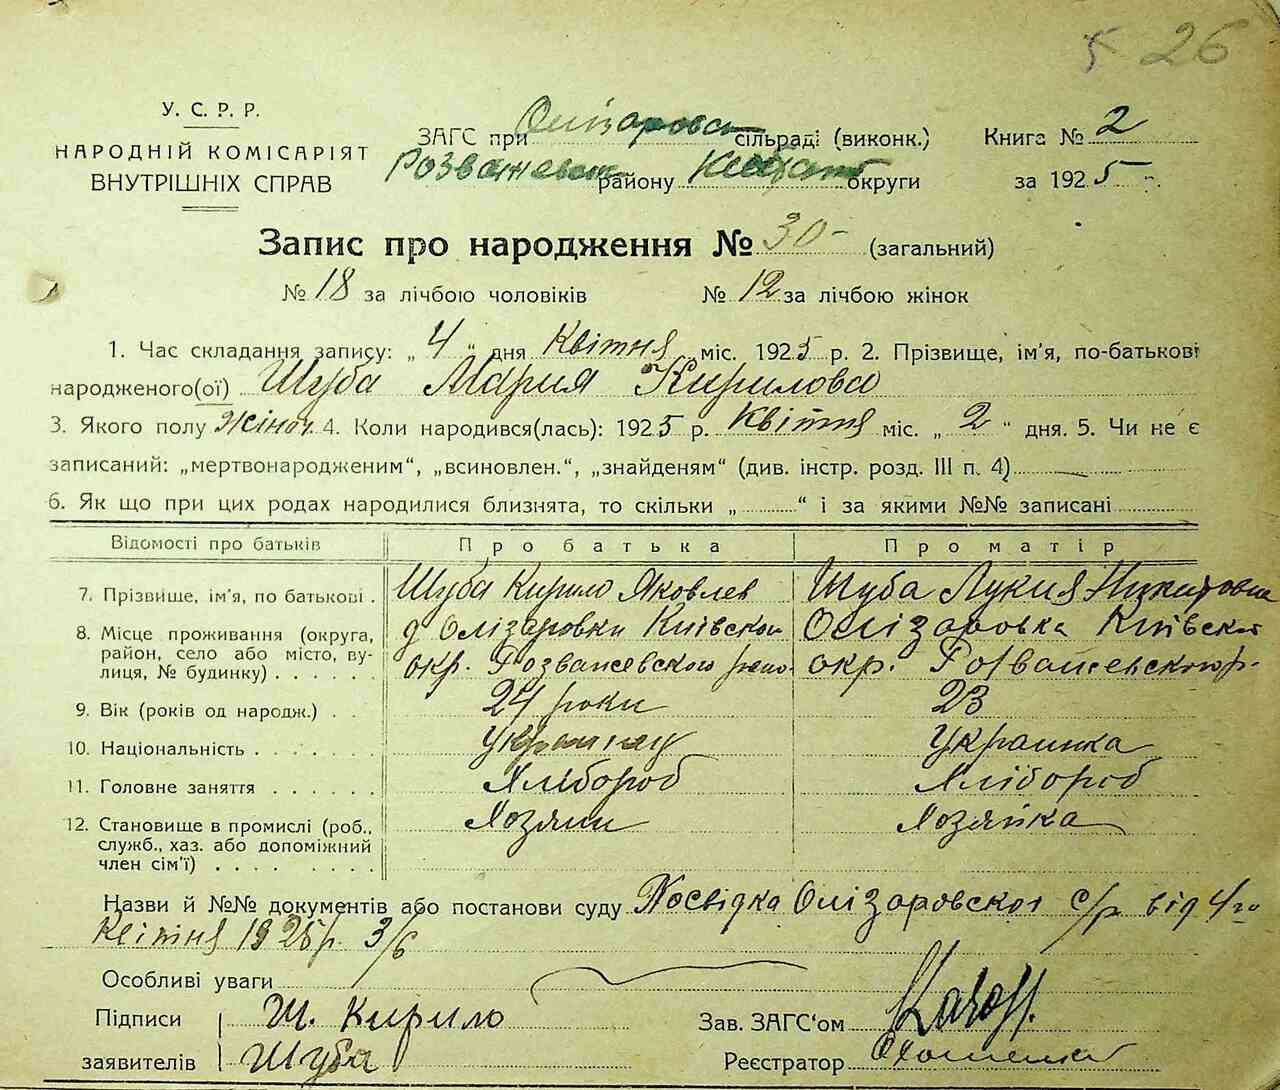 26
У. С. Р. Р.
НАРОДНІЙ КОМІСАРІЯТ
ВНУТРІШНІХ СПРАВ
ЗАГС при Олізаровск сільраді (виконк.) Книга № 2
Розважевск району Київськ округи за 1925 р.
Запис про народження № 30 - (загальний)
№ 18 за лічбою чоловіків № 12 за лічбою жінок
1. Час складання запису: „ 4 “ дня Квітня міс. 1925 р. 2. Прізвище, ім'я, по-батькові
народженого(ої) Шуба Мария Кирилова
3. Якого полу Жіноч. 4. Коли народився(лась): 1925 р. Квітня міс. „ 2 “ дня. 5. Чи не є
записаний: „мертвонародженим“, „всиновлен.“, „знайденям“ (див. інстр. розд. III п. 4)
6. Як що при цих родах народилися близнята, то скільки „ “ і за якими №№ записані
Відомості про батьків Про батька Про матір
7. Прізвище, ім'я, по батькові . Шуба Кирило Яковлев Шуба Лукия Никитовна
8. Місце проживання (округа, район, село або місто, вулиця, № будинку) . . . . . . д Олізаровки Київскои Олізаровка Київскои
окр. Розважевского окр. Розважевского р.
9. Вік (років од народж.) . . 24 роки 23
10. Національність . . . . . . Украинец Украинка
11. Головне заняття . . . . . . Хлібороб Хлібороб
12. Становище в промислі (роб., служб., хаз. або допоміжний член сім'ї) . . . . . . . . Хозяин Хозяйка
Назви й №№ документів або постанови суду Посвідка Олізаровскої с/р від 4го
Квітня 1925 р. 3/6
Особливі уваги
Підписи Ш. Кирило Зав. ЗАГС‘ом
заявителів Шуба Реєстратор